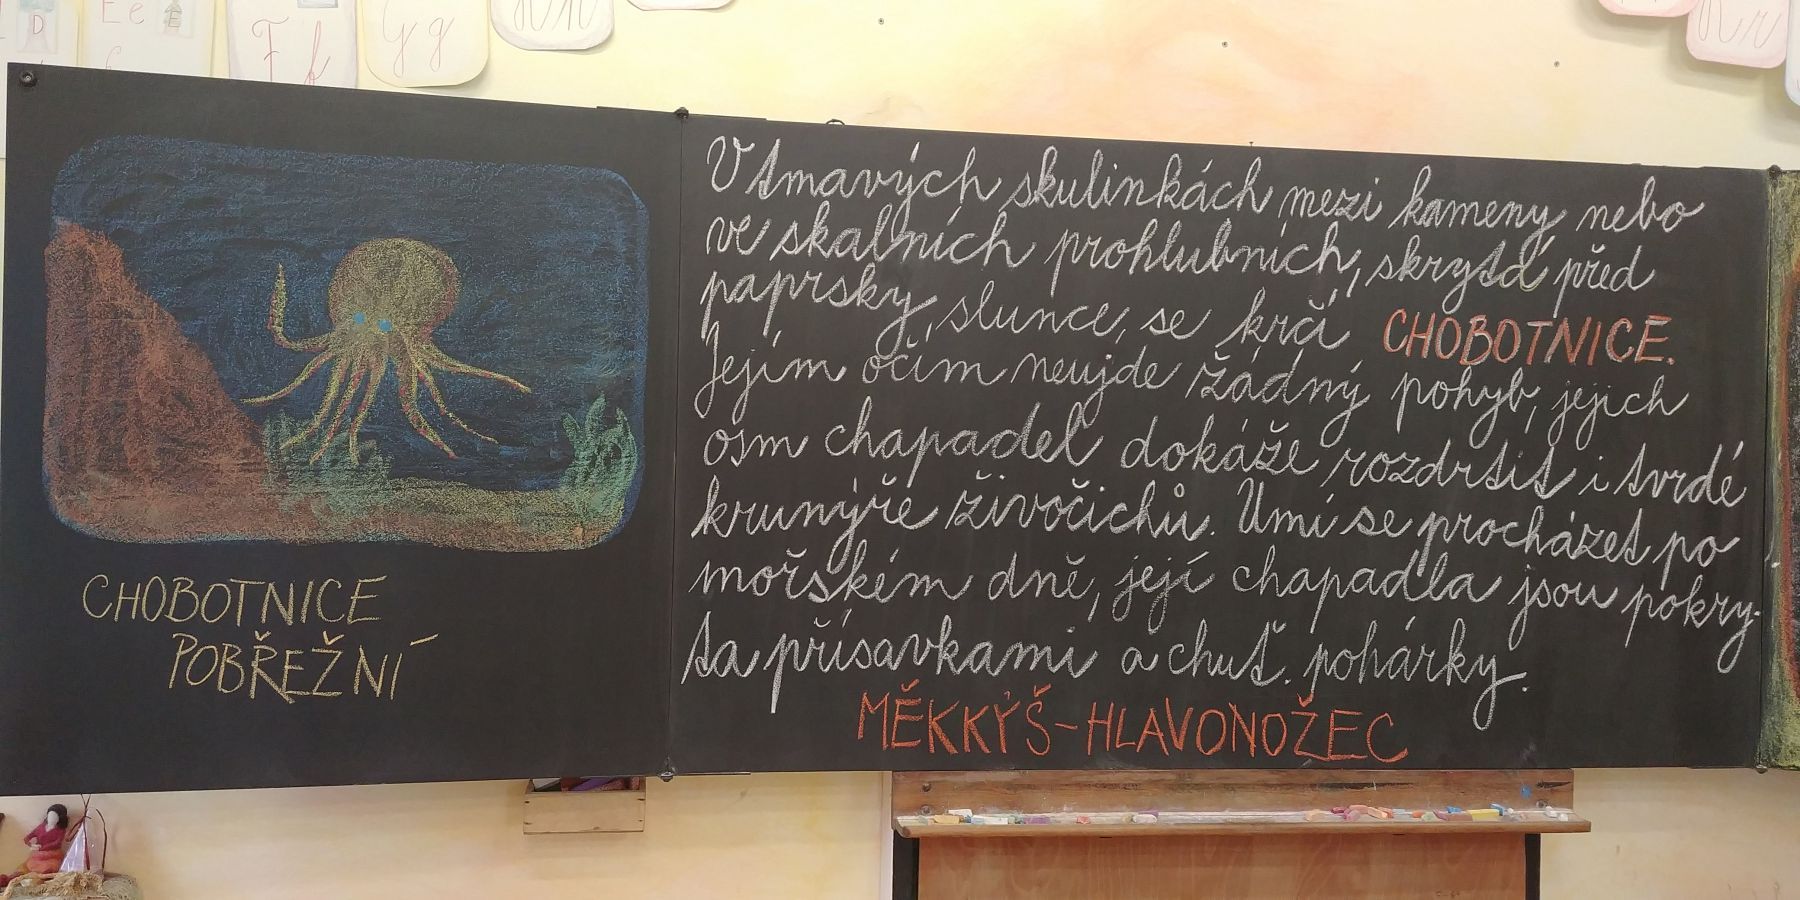 D
Ee
E
F f
G g
R r
V tmavých skulinkách mezi kameny nebo
ve skalních prohlubních, skrytá před
paprsky slunce, se krčí CHOBOTNICE.
Jejím očím neujde žádný pohyb, jejich
osm chapadel dokáže rozdrtit i tvrdé
krunýře živočichů. Umí se procházet po
mořském dně, její chapadla jsou pokry-
ta přísavkami a chuť. pohárky.
MĚKKÝŠ-HLAVONOŽEC
CHOBOTNICE
POBŘEŽNÍ